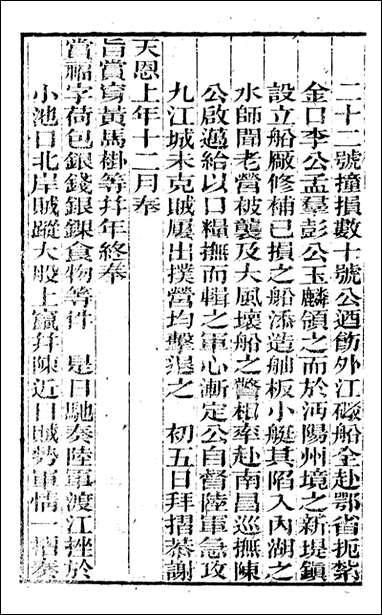 二十二號撞損數十號公迺飭外江礮船全赴鄂省扼紮
金口李公孟羣彭公玉麟領之而於沔陽州境之新堤鎮
設立船厰修補已損之船添造舢板小艇其陷入內湖之
水師聞老營被襲及大風壞船之警相率赴南昌巡撫陳
公啟邁給以口糧撫而輯之軍心漸定公自督陸軍急攻
九江城未克賊屢出撲營均擊退之　初五日拜摺恭謝
天恩上年十二月奉
旨賞穿黃馬掛等幷年終奉
賞福字荷包銀錢銀錁食物等件　是日馳奏陸軍渡江挫於
小池口北岸賊蹤大股上竄幷陳近日賊勢軍情一摺奏